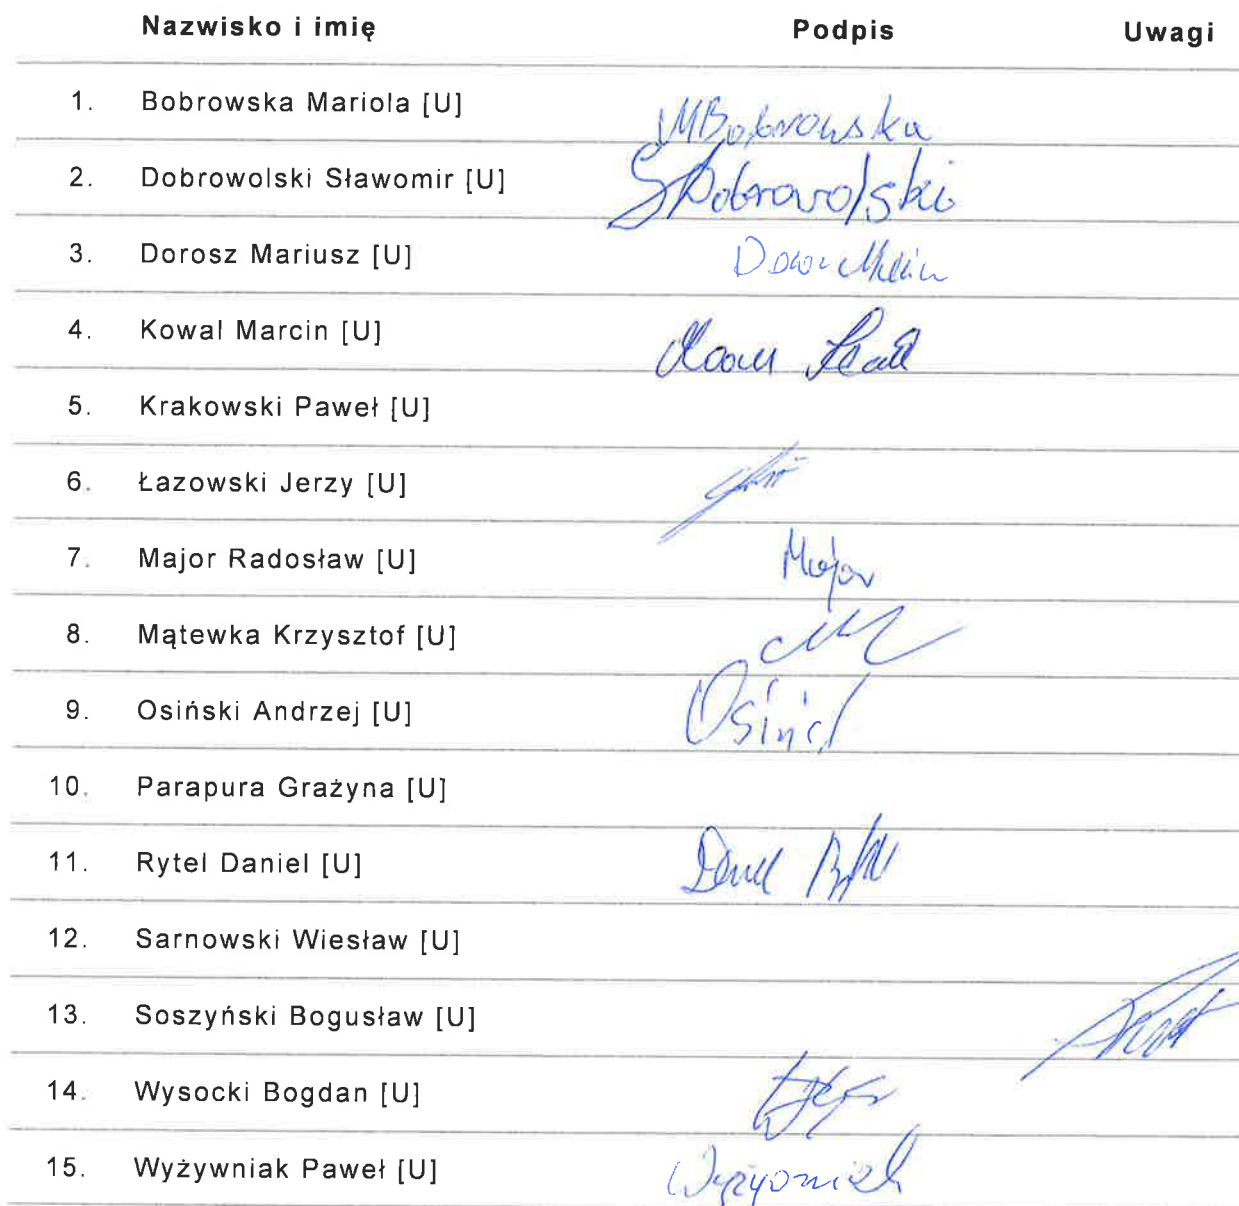 Nazwisko i imię Podpis Uwagi
1. Bobrowska Mariola [U] MBobrowska
2. Dobrowolski Sławomir [U] SDobrowolski
3. Dorosz Mariusz [U]
4. Kowal Marcin [U]
5. Krakowski Paweł [U]
6. Łazowski Jerzy [U]
7. Major Radosław [U] Major
8. Mątewka Krzysztof [U]
9. Osiński Andrzej [U]
10. Parapura Grażyna [U]
11. Rytel Daniel [U]
12. Sarnowski Wiesław [U]
13. Soszyński Bogusław [U]
14. Wysocki Bogdan [U]
15. Wyżywniak Paweł [U]